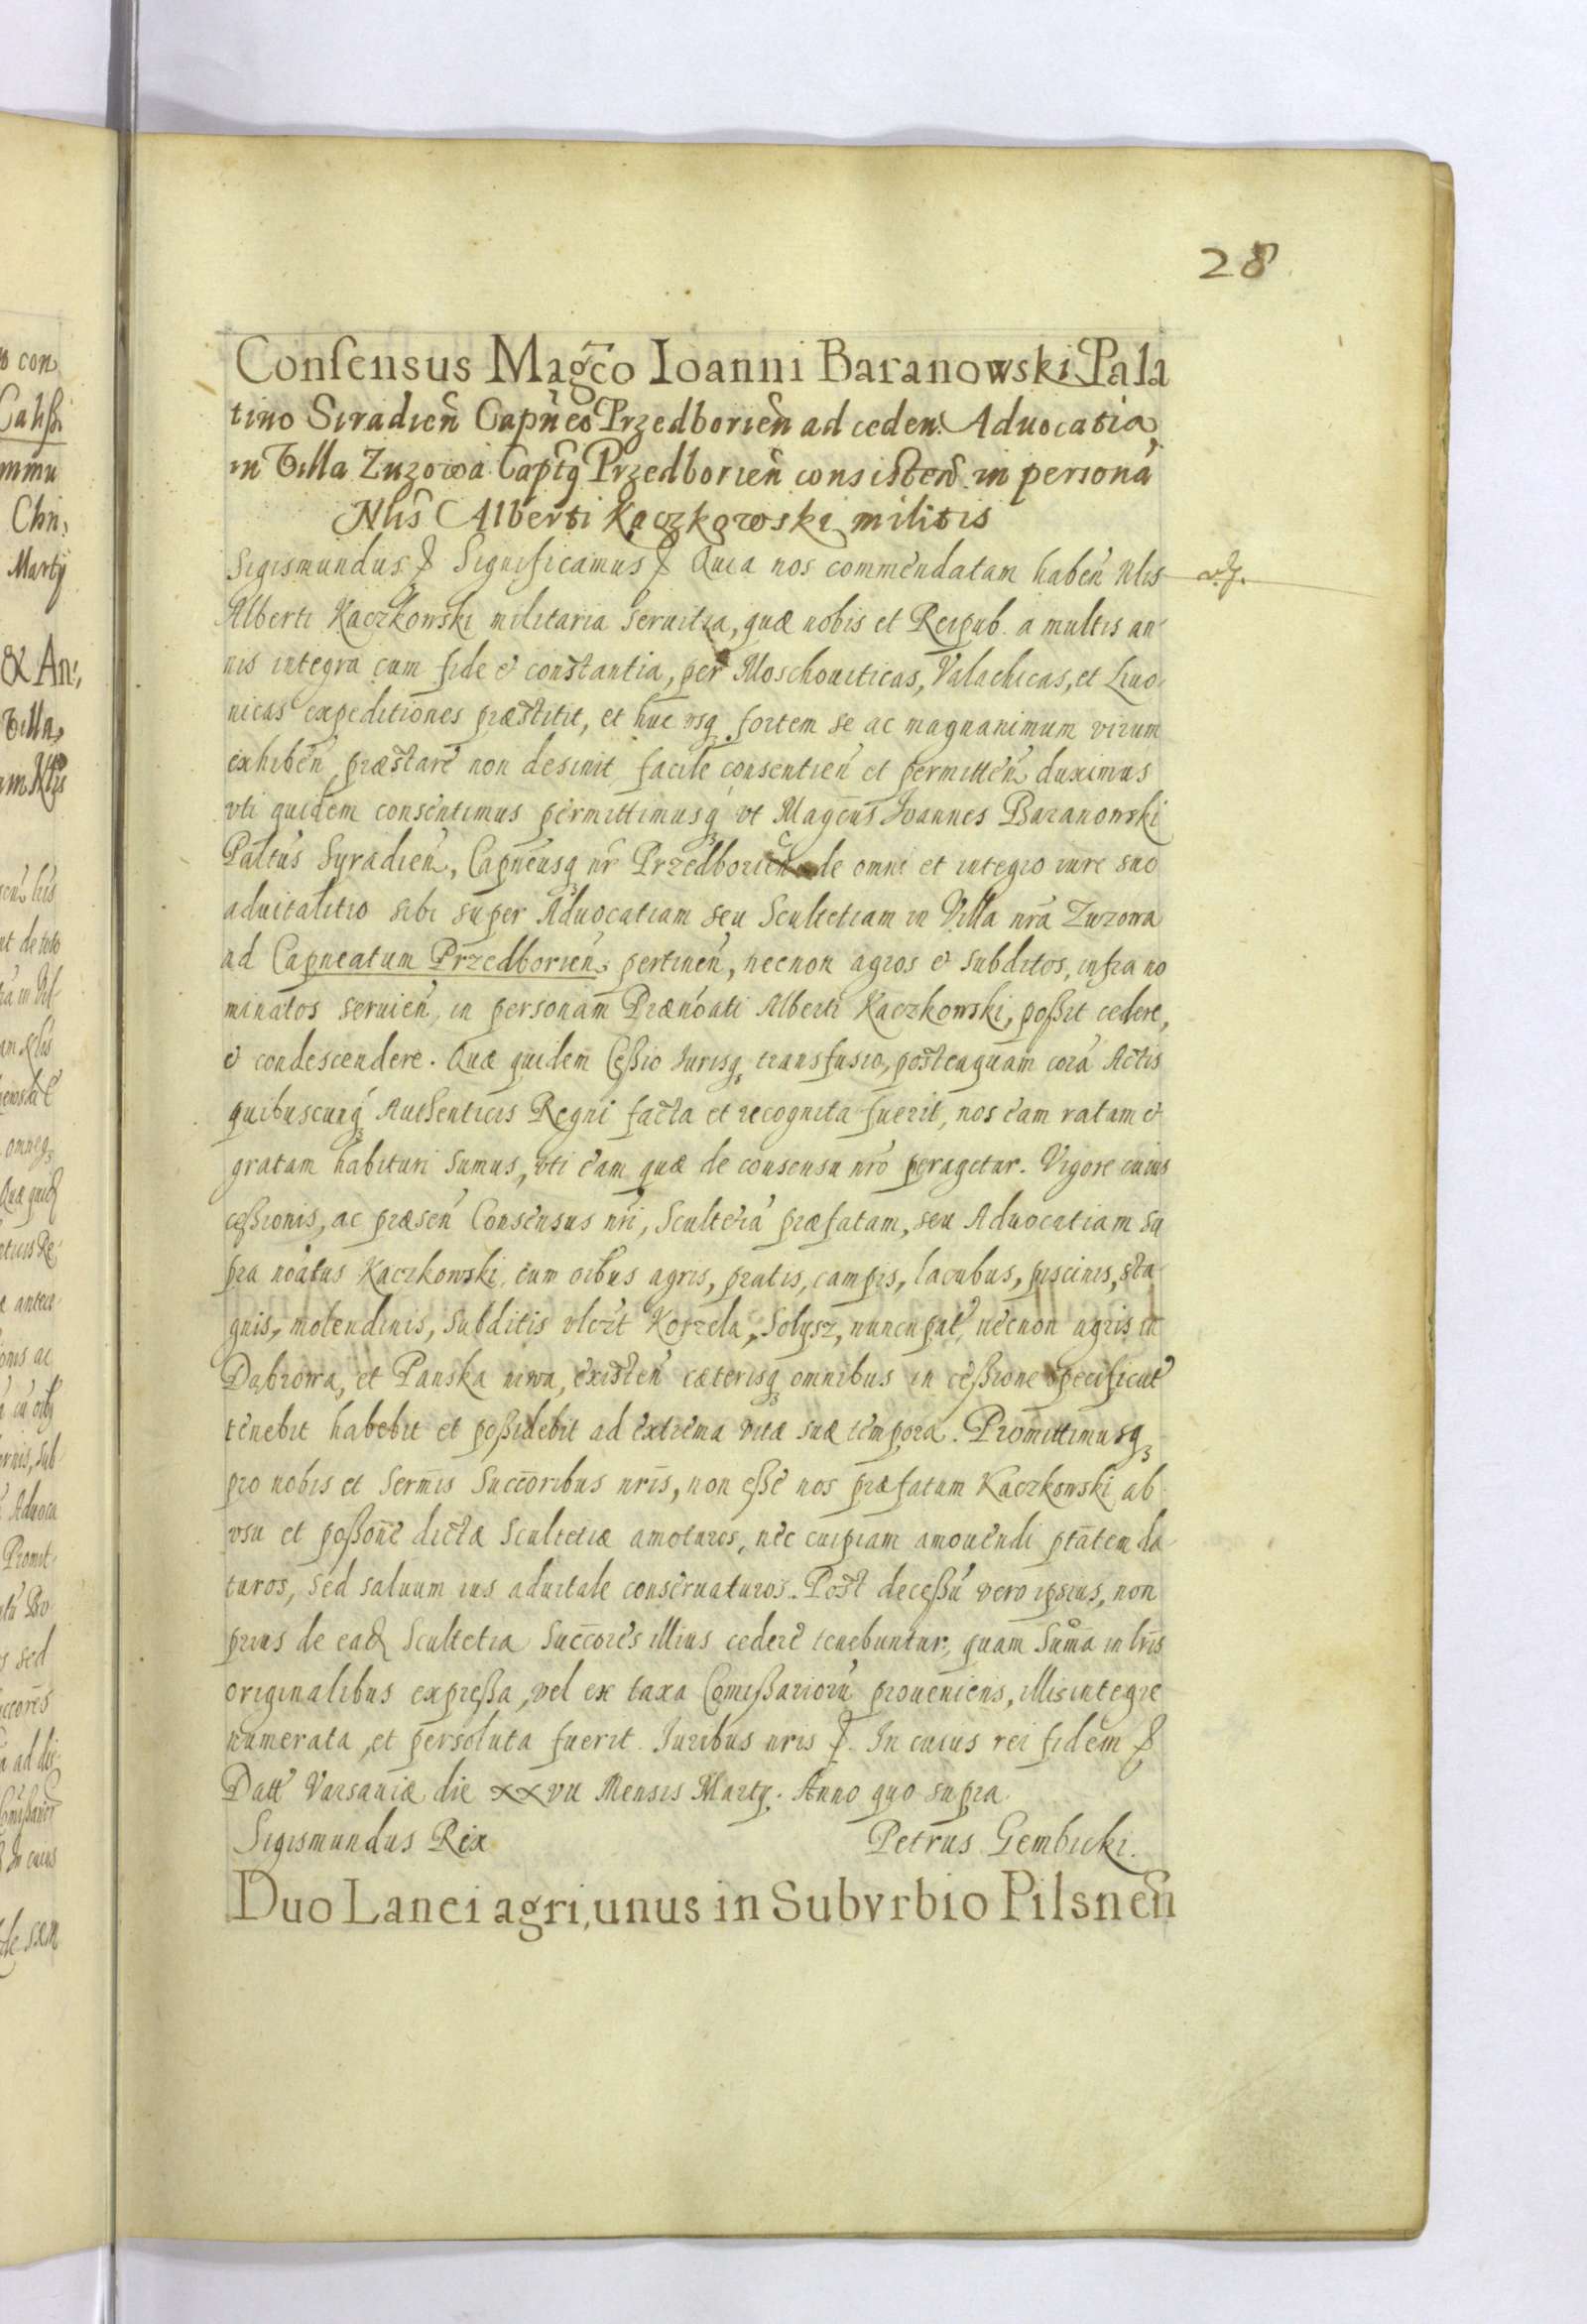 28
Consensus Magco Ioanni Baranowski Pala
tino Siradien Capneo Przedborien ad ceden. Aduocatia
in Villa Zuzowa Captq Przedborien consisten in persona
Nlis Alberti Kaczkowski militis
Sigismundus Significamus Quia nos commendatam haben Nlis
Alberti Kaczkowski militaria seruitia, quæ nobis et Reipub. a multis an
nis integra cum fide & constantia, per Moschouiticas, Valachicas, et Liuo
nicas expeditiones præstitit, et huc vsq fortem se ac magnanimum virum
exhiben præstare non desinit facile consentien et permitten duximus
vti quidem consentimus permittimusq vt Magcus Joannes Baranowski
Paltus Syradien, Capneusq nr Przedborien de omni et integro iure suo
aduitalitio sibi super Aduocatiam seu Scultetiam in Villa nra Zuzowa
ad Capneatum Przedborien pertinen, necnon agros & subditos, infra no
minatos seruien in personam Prænoati Alberti Kaczkowski, possit cedere,
& condescendere. Quæ quidem Cessio Iurisq transfusio, posteaquam cora Actis
quibuscunq Authenticis Regni facta et recognita fuerit, nos eam ratam &
gratam habituri sumus, vti eam quæ de consensu nro peragetur. Vigore cuius
cessionis, ac præsen Consensus nri, Sculteria præfatam, seu Aduocatiam su
pra noatus Kaczkowski cum oibus agris, pratis, campis, lacubus, piscinis, sta
gnis, molendinis, subditis vlezt Korzela, Soltysz, nuncupat, necnon agris in
Dąbrowa, et Panska niwa, existen cæterisq omnibus in cessione specificat
tenebit habebit et possidebit ad extrema vitæ suæ tempora. Promittimusq
pro nobis et Sermis Succoribus nris, non esse nos præfatum Kaczkowski ab
vsu et possone dictæ Scultetiæ amoturos, nec cuipiam amouendi ptatem da
turos, sed saluum ius aduitale conseruaturos. Post decessu vero ipsius, non
prius de ead Scultetia Succores illius cedere tenebuntur, quam Suma in lris
originalibus expressa, vel ex taxa Comissarioru proueniens, illis integre
numerata, et persoluta fuerit. Iuribus nris. In cuius rei fidem
Datt Varsauiæ die xxvii Mensis Martij. Anno quo supra
Sigismundus Rex Petrus Gembicki.
Duo Lanei agri, unus in Subvrbio Pilsnen